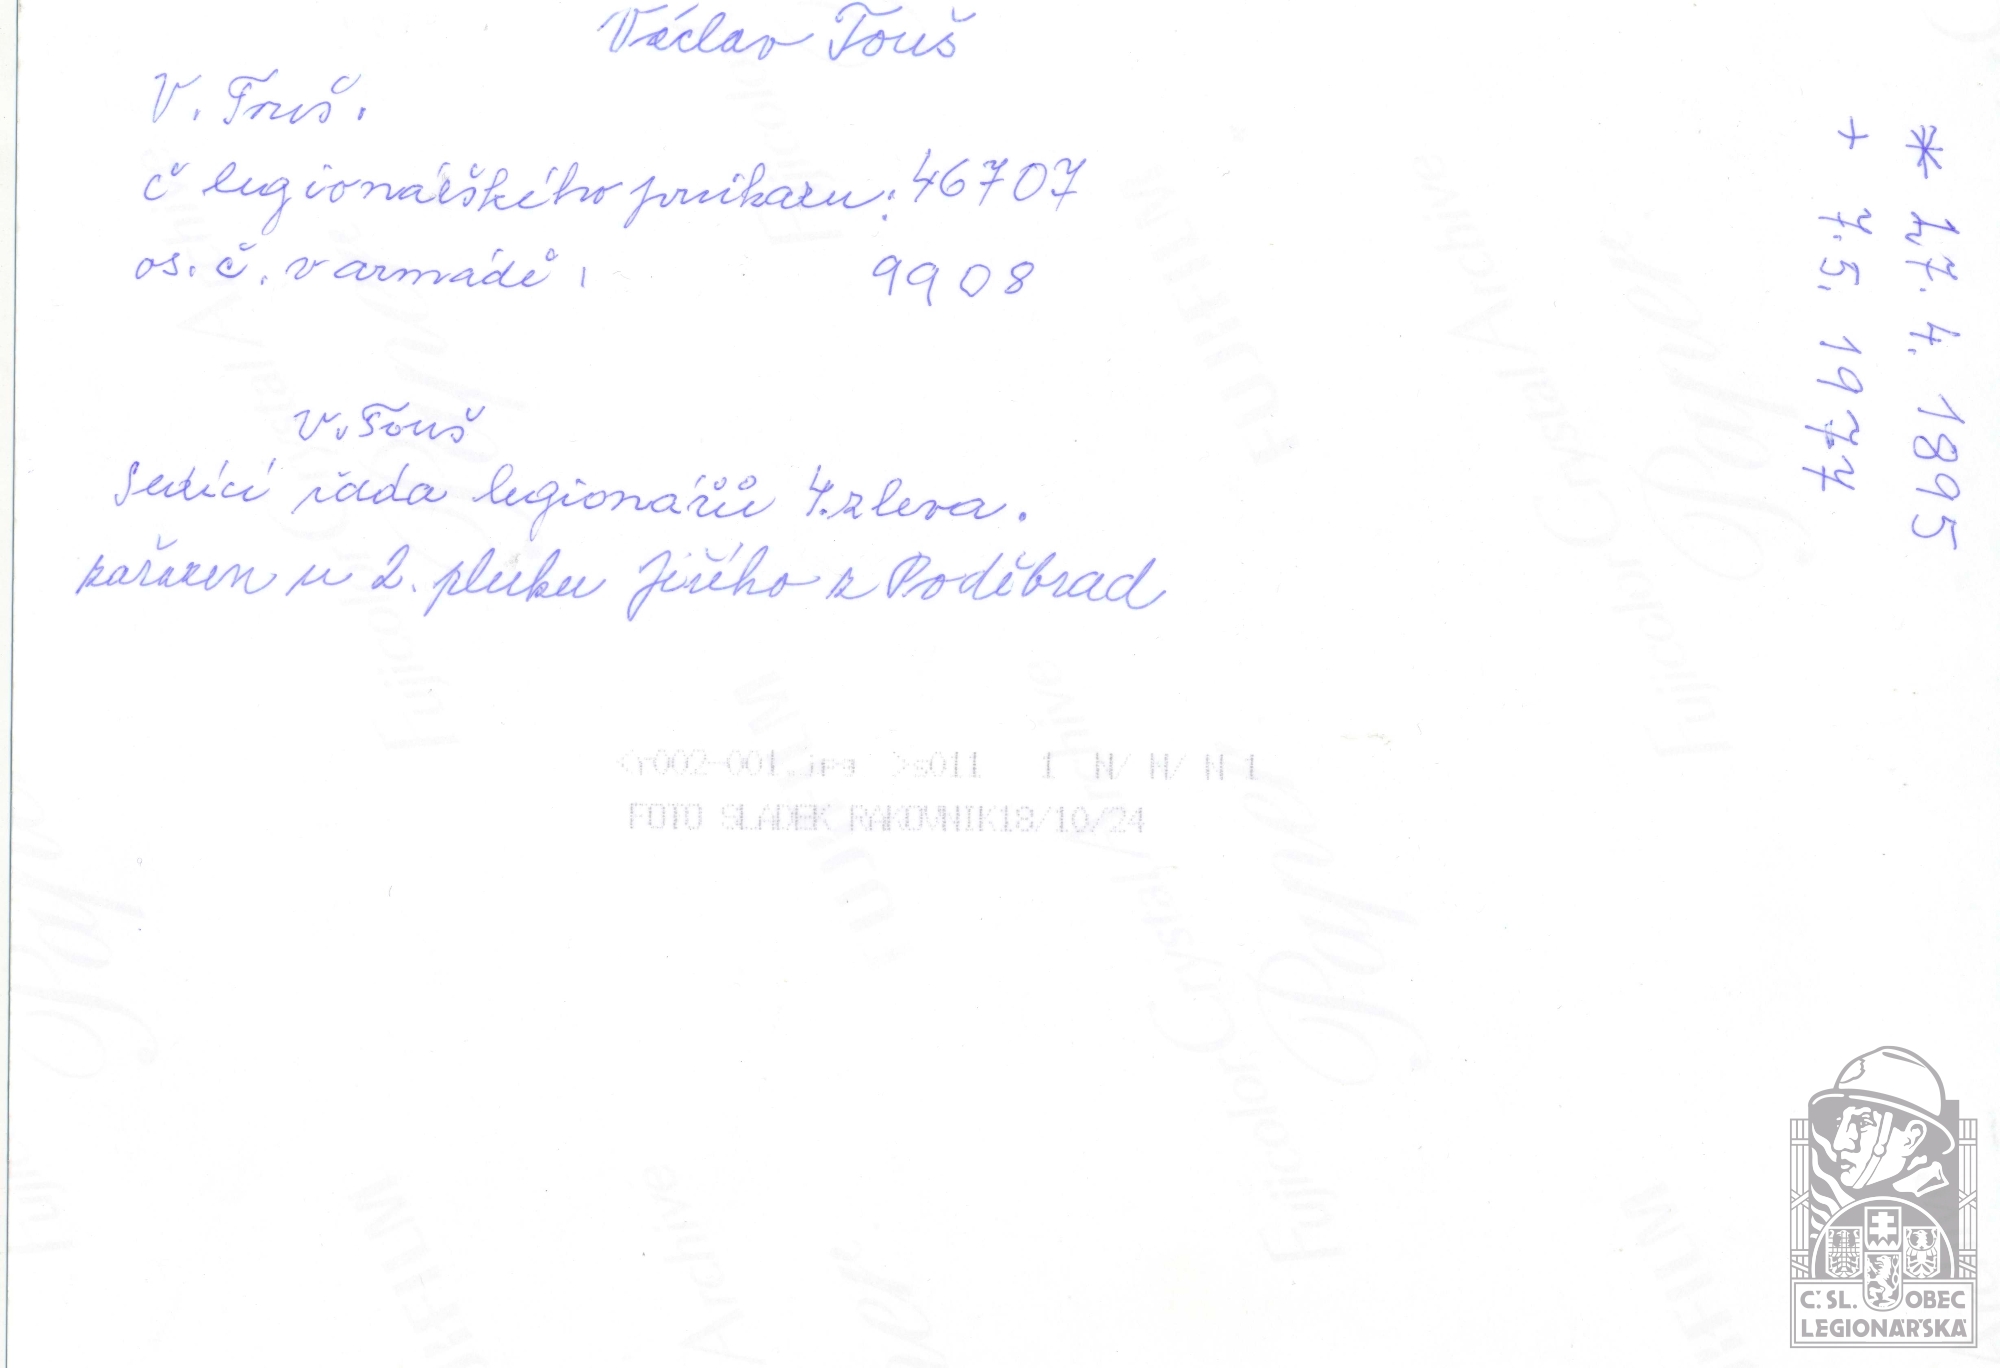 Václav Touš
V. Touš.
č legionářského průkazu: 46707
os. č. v armádě: 9908
V. Touš
Sedící řada legionářů 4. zleva.
zařazen u 2. pluku Jiřího z Poděbrad
* 27. 4. 1895
+ 7. 5. 1977
<r002-001.jpg >s011 1 N/ N/ N 1
FOTO SLADEK RAKOVNIK18/10/24
Fujicolor Crystal Archive
FUJIFILM
Č. SL. OBEC
LEGIONÁŘSKÁ